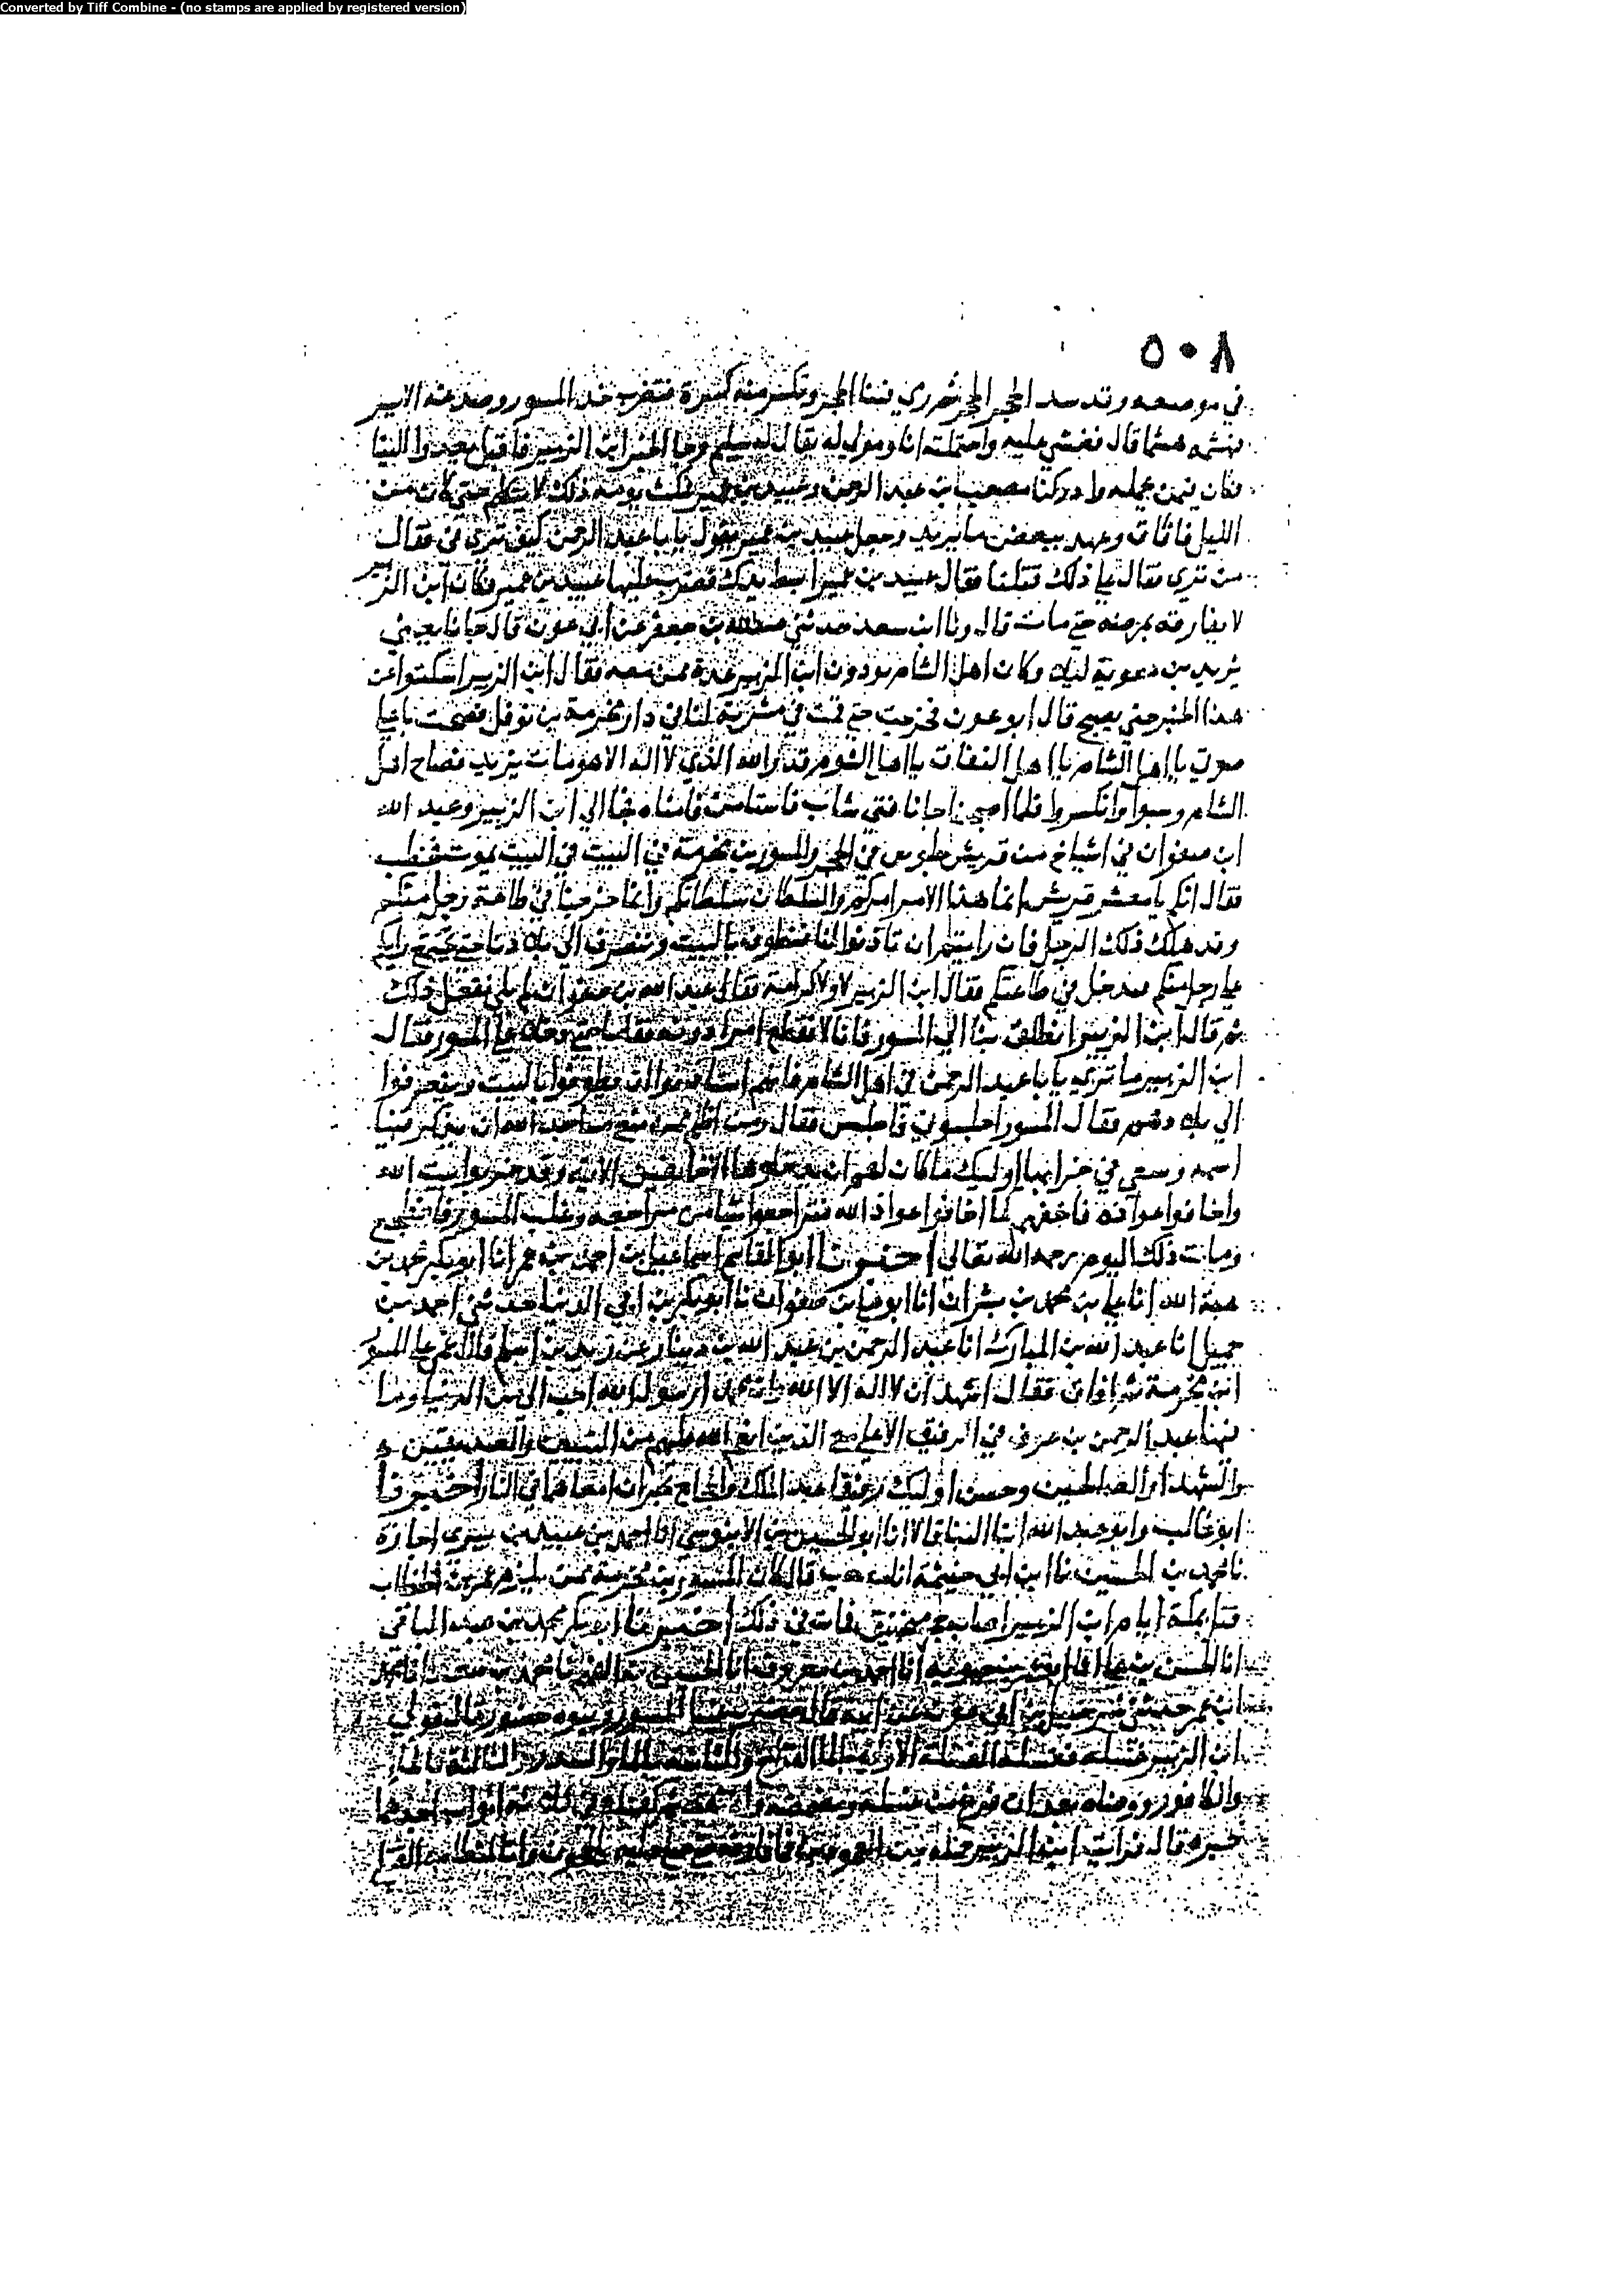 Converted by Tiff Combine - (no stamps are applied by registered version)
٥٠٨
في موضعه وقد سد الحجر الحجر ثم رى فينا الحجر وتكسر منه كسرة فتضرب خد المسور وصدغه الايسر
فهشمه هشما قال فغشي عليه واحتملته انا ومولى له يقال له سليم وجا الخبر ابن الزبير فاقبل يعدو الينا
فكان فيمن يحمله وادركنا مصعب بن عبد الرحمن وعبيد بن عمير فمكث يومه ذلك لا يتكلم حتى كان من
الليل فافاق وعهد ببعض ما يريد وجعل عبيد بن عمير يقول يابا عبد الرحمن كيف ترى في فقال
من ترى فقال على ذلك قتلنا فقال عبيد بن عمير ابسط يدك فضرب عليها عبيد بن عمير فكان ابن الزبير
لا يفارقه بمرضه حتى مات قال ونا ابن سعد حدثني عبد الله بن جعفر عن ابي عون قال جانا نعي
يزيد بن معوية ليلا وكان اهل الشام يودون ابن الزبير ممن معه فقال ابن الزبير اسكتوا عن
هذا الخبر حتى يصبح قال ابو عون فخرجت حتى قمت في مشربة لنا في دار مخرمة بن نوفل فصحت باعلى
صوتي يا اهل الشام يا اهل النفاق يا اهل الشوم قد والله الذي لا اله الا هو مات يزيد فصاح اهل
الشام وسبوا وانكسروا فلما اصبحنا جانا فتى شاب فاستامن فامناه فجا الى ابن الزبير وعبد الله
ابن صفوان في اشياخ من قريش جلوس في الحجر والمسور بن مخرمة في البيت في البيت يموت فخطب
فقال انكم يا معشر قريش انما هذا الامر امركم والسلطان سلطانكم وانما خرجنا في طاعة رجل منكم
وقد هلك ذلك الرجل فان رايتم ان تاذنوا لنا فنطوف بالبيت وننصرف الى بلادنا حتى يجتمع رايكم
على رجل منكم فندخل في طاعتكم فقال ابن الزبير لا ولا كرامة فقال عبد الله بن صفوان بلى نفعل ذلك
ثم قال ابن الزبير انطلق بنا الى المسور فانا لا نقطع امرا دونه حتى وقف على المسور فقال
ابن الزبير ما ترى يابا عبد الرحمن في اهل الشام فانهم استاذنوا ان يطوفوا بالبيت وينصرفوا
الى بلادهم فقال المسور اجلسوني فاجلس فقال ومن اظلم ممن منع مساجد الله ان يذكر فيها
اسمه وسعى في خرابها اوليك ما كان لهم ان يدخلوها الا خايفين الاية وقد خربوا بيت الله
واخافوا عواذه فاخفهم كما اخافوا عواذ الله فتراجعوا شيا من مراجعه وغلب المسور فاضطجع
ومات ذلك اليوم يرحمه الله تعالى اخبرنا ابو القاسم اسماعيل بن احمد بن عمر انا ابو بكر محمد بن
هبة الله انا علي بن محمد بن بشران انا ابو علي بن صفوان نا ابو بكر بن ابي الدنيا حدثني احمد بن
جميل انا عبد الله بن المبارك انا عبد الرحمن بن عبد الله بن دينار عن زيد بن اسلم قال اغمي على المسور
ابن مخرمة ثم افاق فقال اشهد ان لا اله الا الله وان محمدا رسول الله احب الي من الدنيا وما
فيها عبد الرحمن بن عوف في الرفيق الاعلى مع الذين انعم الله عليهم من النبيين والصديقين
والشهدا والصالحين وحسن اوليك رفيقا عبد الملك والحجاج يجران امعاهما في النار اخبرنا
ابو غالب وابو عبد الله ابنا البنا قالا انا ابو الحسين بن الابنوسي انا احمد بن عبيد بن بيري اجازة
نا محمد بن الحسين نا ابن ابي خيثمة انا مصعب قال كان المسور بن مخرمة ممن يلزم عمر بن الخطاب
قتل بمكة ايام ابن الزبير اصابه حجر منجنيق فمات في ذلك اخبرنا ابو بكر محمد بن عبد الباقي
انا الحسن بن علي انا ابو عمر بن حيويه انا احمد بن معروف انا الحسين بن الفهم نا محمد بن سعد انا محمد
ابن عمر حدثني شرحبيل بن ابي عون عن ابيه قال حضر المسور وبنوه حضور قال فولي
ابن الزبير غسله فغسله الغسلة الاولى بالما القراح والثانية بالما والسدر والثالثة بالما
والكافور ووضاه بعد ان فرغ من غسله وكفناه في ثلاثة اثواب احدها
حبرة قال فرايت ابن الزبير حمله بين العمودين فما فارقه حتى صلى عليه